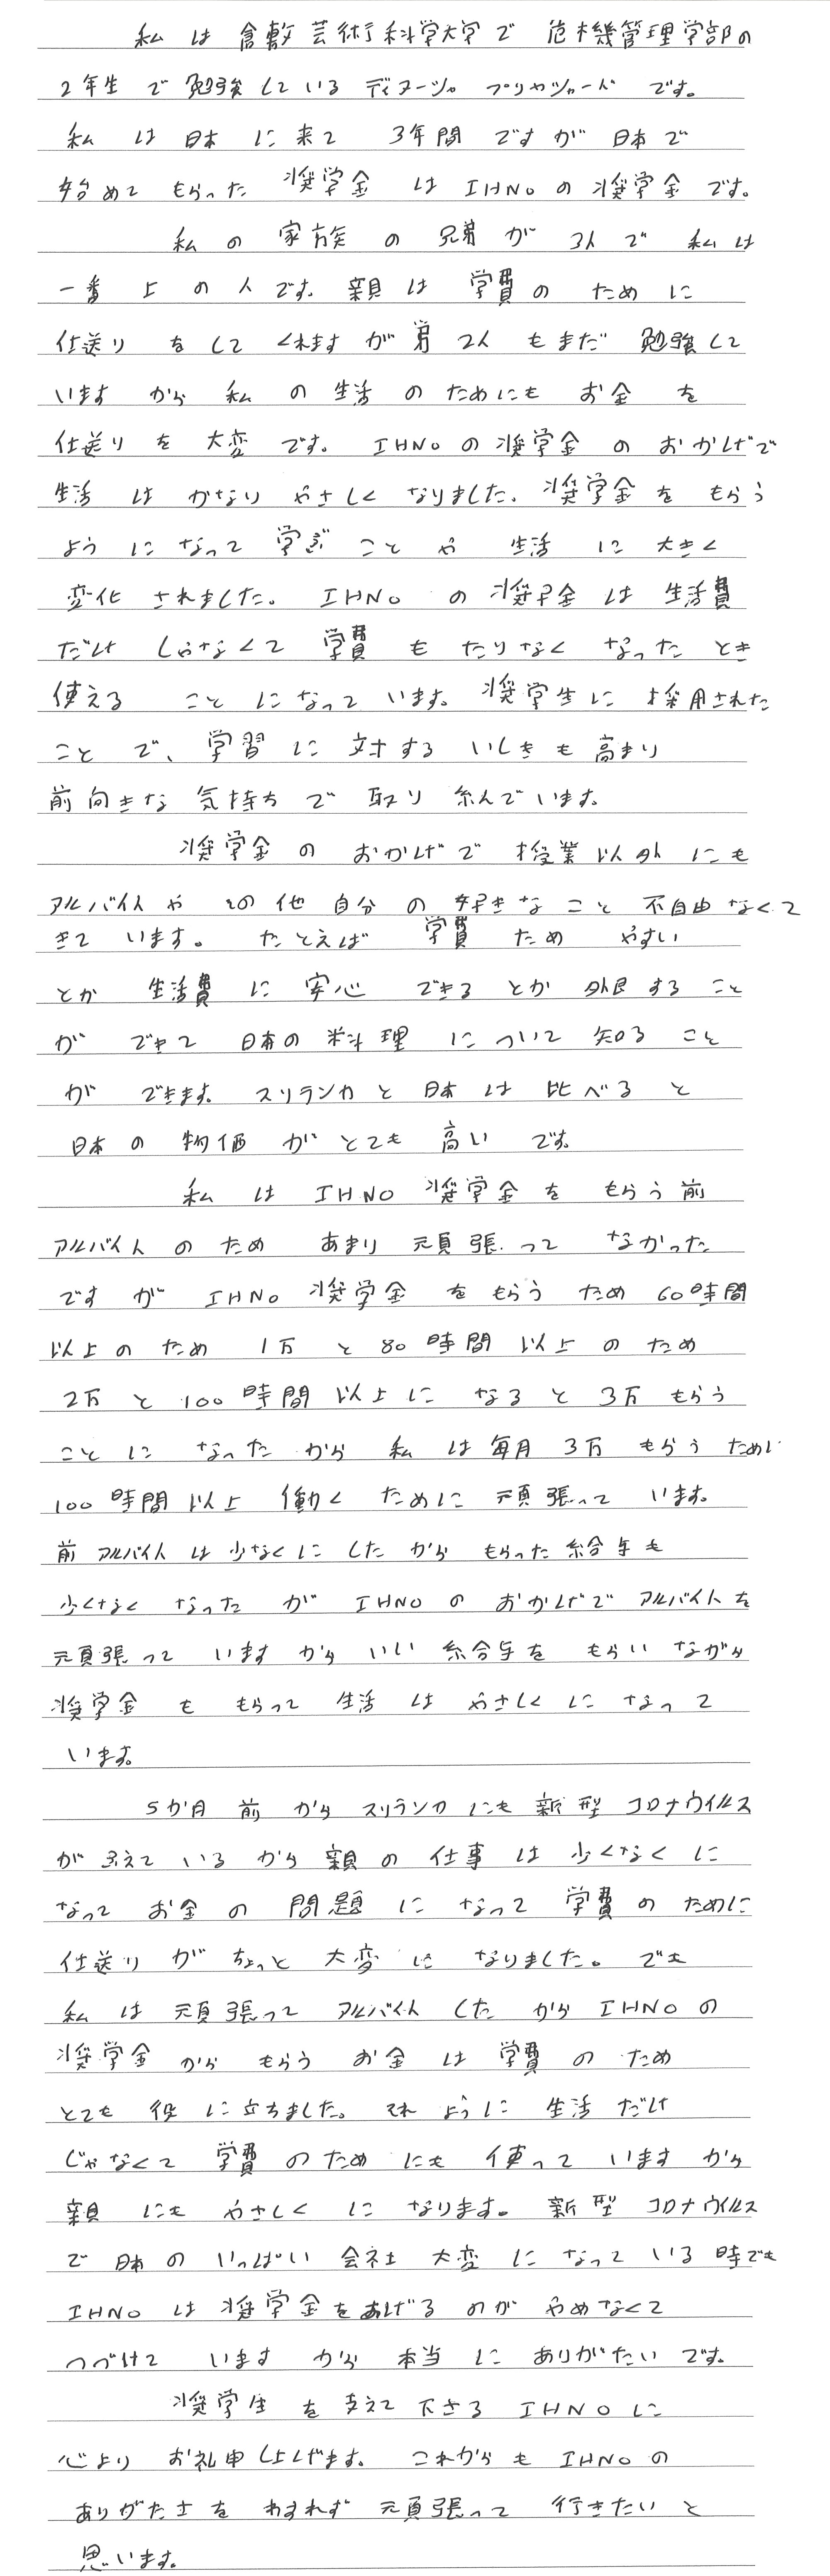 私は倉敷芸術科学大学で 危機管理学部の
2年生で勉強している ディヌーシャ プリヤシャード です。
私は日本に来て 3年間ですが日本で
始めてもらった奨学金はIHNOの奨学金です。
私の家族の兄弟が3人で私は
一番上の人です。親は学費のために
仕送りをしてくれますが弟2人もまだ勉強して
いますから私の生活のためにもお金を
仕送りを大変です。IHNOの奨学金のおかげで
生活はかなりやさしくなりました。奨学金をもらう
ようになって学ぶことや生活に大きく
変化されました。IHNOの奨学金は生活費
だけじゃなくて学費もたりなくなったとき
使えることになっています。奨学生に採用された
ことで、学習に対するいしきも高まり
前向きな気持ちで取り組んでいます。
奨学金のおかげで授業以外にも
アルバイトやその他自分の好きなこと不自由なくて
きています。たとえば学費ためやすい
とか生活費に安心できるとか外食すること
ができて日本の料理について知ること
ができます。スリランカと日本は比べると
日本の物価がとても高いです。
私はIHNO奨学金をもらう前
アルバイトのためあまり頑張ってなかった
ですがIHNO奨学金をもらうため60時間
以上のため1万と80時間以上のため
2万と100時間以上になると3万もらう
ことになったから私は毎月3万もらうために
100時間以上働くために頑張っています。
前アルバイトは少なくにしたからもらった給与も
少くなくなったがIHNOのおかげでアルバイトを
頑張っていますからいい給与をもらいながら
奨学金ももらって生活はやさしくになって
います。
5か月前からスリランカにも新型コロナウイルス
がふえているから親の仕事は少くなくに
なってお金の問題になって学費のために
仕送りがちょっと大変になりました。でも
私は頑張ってアルバイトしたからIHNOの
奨学金からもらうお金は学費のため
とても役に立ちました。それように生活だけ
じゃなくて学費のためにも使っていますから
親にもやさしくになります。新型コロナウイルス
で日本のいっぱい会社大変になっている時でも
IHNOは奨学金をあげるのがやめなくて
つづけていますから本当にありがたいです。
奨学生を支えて下さるIHNOに
心よりお礼申し上げます。これからもIHNOの
ありがたさをわすれず頑張って行きたいと
思います。